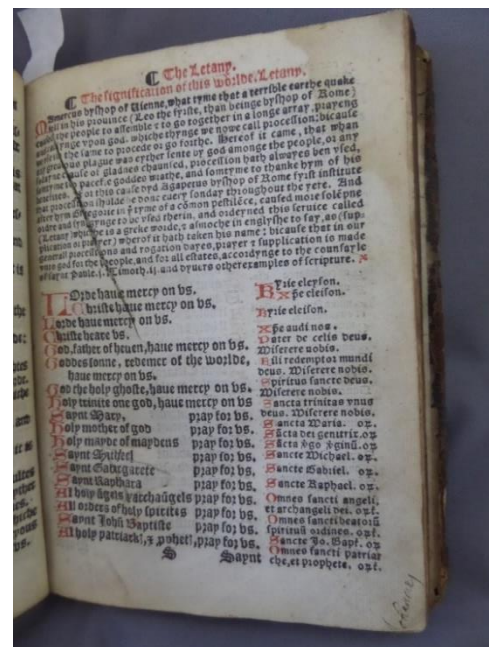 ¶ The Letany.
¶ The signification of this worde, Letany.
Mamercus byshop of Uienne, what tyme that a terrible earthe quake
fell in his prouince (Leo the fyrste, than beinge byshop of Rome)
the people to assemble & to go together in a longe array, prayeng
vpon god. whiche thynge we nowe call procession: bicause
the same to procede or go forthe. Hereof it came, that whan
greuous plague was eyther sente by god amonge the people, or any
cause of gladnes chaunsed, procession hath alwayes ben vsed,
to pacefye goddes wrathe, and somtyme to thanke hym of his
benefites. For this cause dyd Agapetus byshop of Rome fyrst institute
that procession shulde be done euery sonday throughout the yere. And
after hym Gregorie in ye tyme of a cõmon pestilẽce, caused more solẽpne
ordre and syngynge to be vsed therin, and ordeyned this seruice called
(Letany whiche is a greke worde, & asmoche in englyshe to say, as (sup-
plication or prayer) wherof it hath taken his name: bicause that in our
generall processions and rogation dayes, prayer & supplication is made
vnto god for the people, and for all estates, accordynge to the counsayle
of saynt Paule. j. Timoth. ij. and dyuers other examples of scripture.
LOrde haue mercy on vs.
Christe haue mercy on vs.
Lorde haue mercy on vs.
Christe heare vs.
God, father of heuen, haue mercy on vs.
Goddes sonne, redemer of the worlde,
haue mercy on vs.
God the holy ghoste, haue mercy on vs.
Holy trinite one god, haue mercy on vs.
Saynt Mary, pray for vs.
Holy mother of god pray for vs.
Holy mayde of maydens pray for vs.
Saynt Michael pray for vs.
Saynt Gabrgarete pray for vs.
Saynt Raphaell pray for vs.
Al holy ãgels & archaũgels pray for vs.
All orders of holy spirites pray for vs.
Saynt Johñ Baptiste pray for vs.
Al holy patriark!, & pphet!, pray for vs.
S Saynt
KYrie eleyson.
Xp̃e eleison.
Kyrie eleison.
Xp̃e audi nos.
Pater de celis deus.
Miserere nobis.
Fili redemptor mundi
deus. Miserere nobis.
Spiritus sancte deus.
Miserere nobis.
Sancta trinitas vnus
deus. Miserere nobis.
Sancta Maria. or.
Sãcta dei genitrix. or.
Sãcta v̄go v̄ginũ. or.
Sancte Michael. or.
Sancte Gabriel. or.
Sancte Raphael. or.
Omnes sancti angeli,
et archangeli dei. or.
Omnes sancti beatorũ
spirituũ ordines. or.
Sancte Jo. Bapt. or.
Omnes sancti patriar
che, et prophete. or.